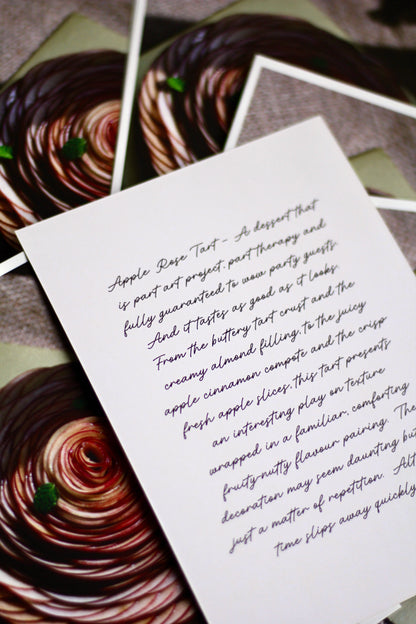 Apple Rose Tart - A dessert that
is part art project, part therapy and
fully guaranteed to wow party guests.
And it tastes as good as it looks.
From the buttery tart crust and the
creamy almond filling, to the juicy
apple cinnamon compote and the crisp
fresh apple slices, this tart presents
an interesting play on texture
wrapped in a familiar, comforting
fruity-nutty flavour pairing. The
decoration may seem daunting but
just a matter of repetition.
time slips away quickly